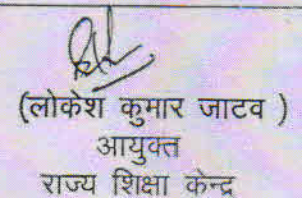 (लोकेश कुमार जाटव )
आयुक्त
राज्य शिक्षा केन्द्र